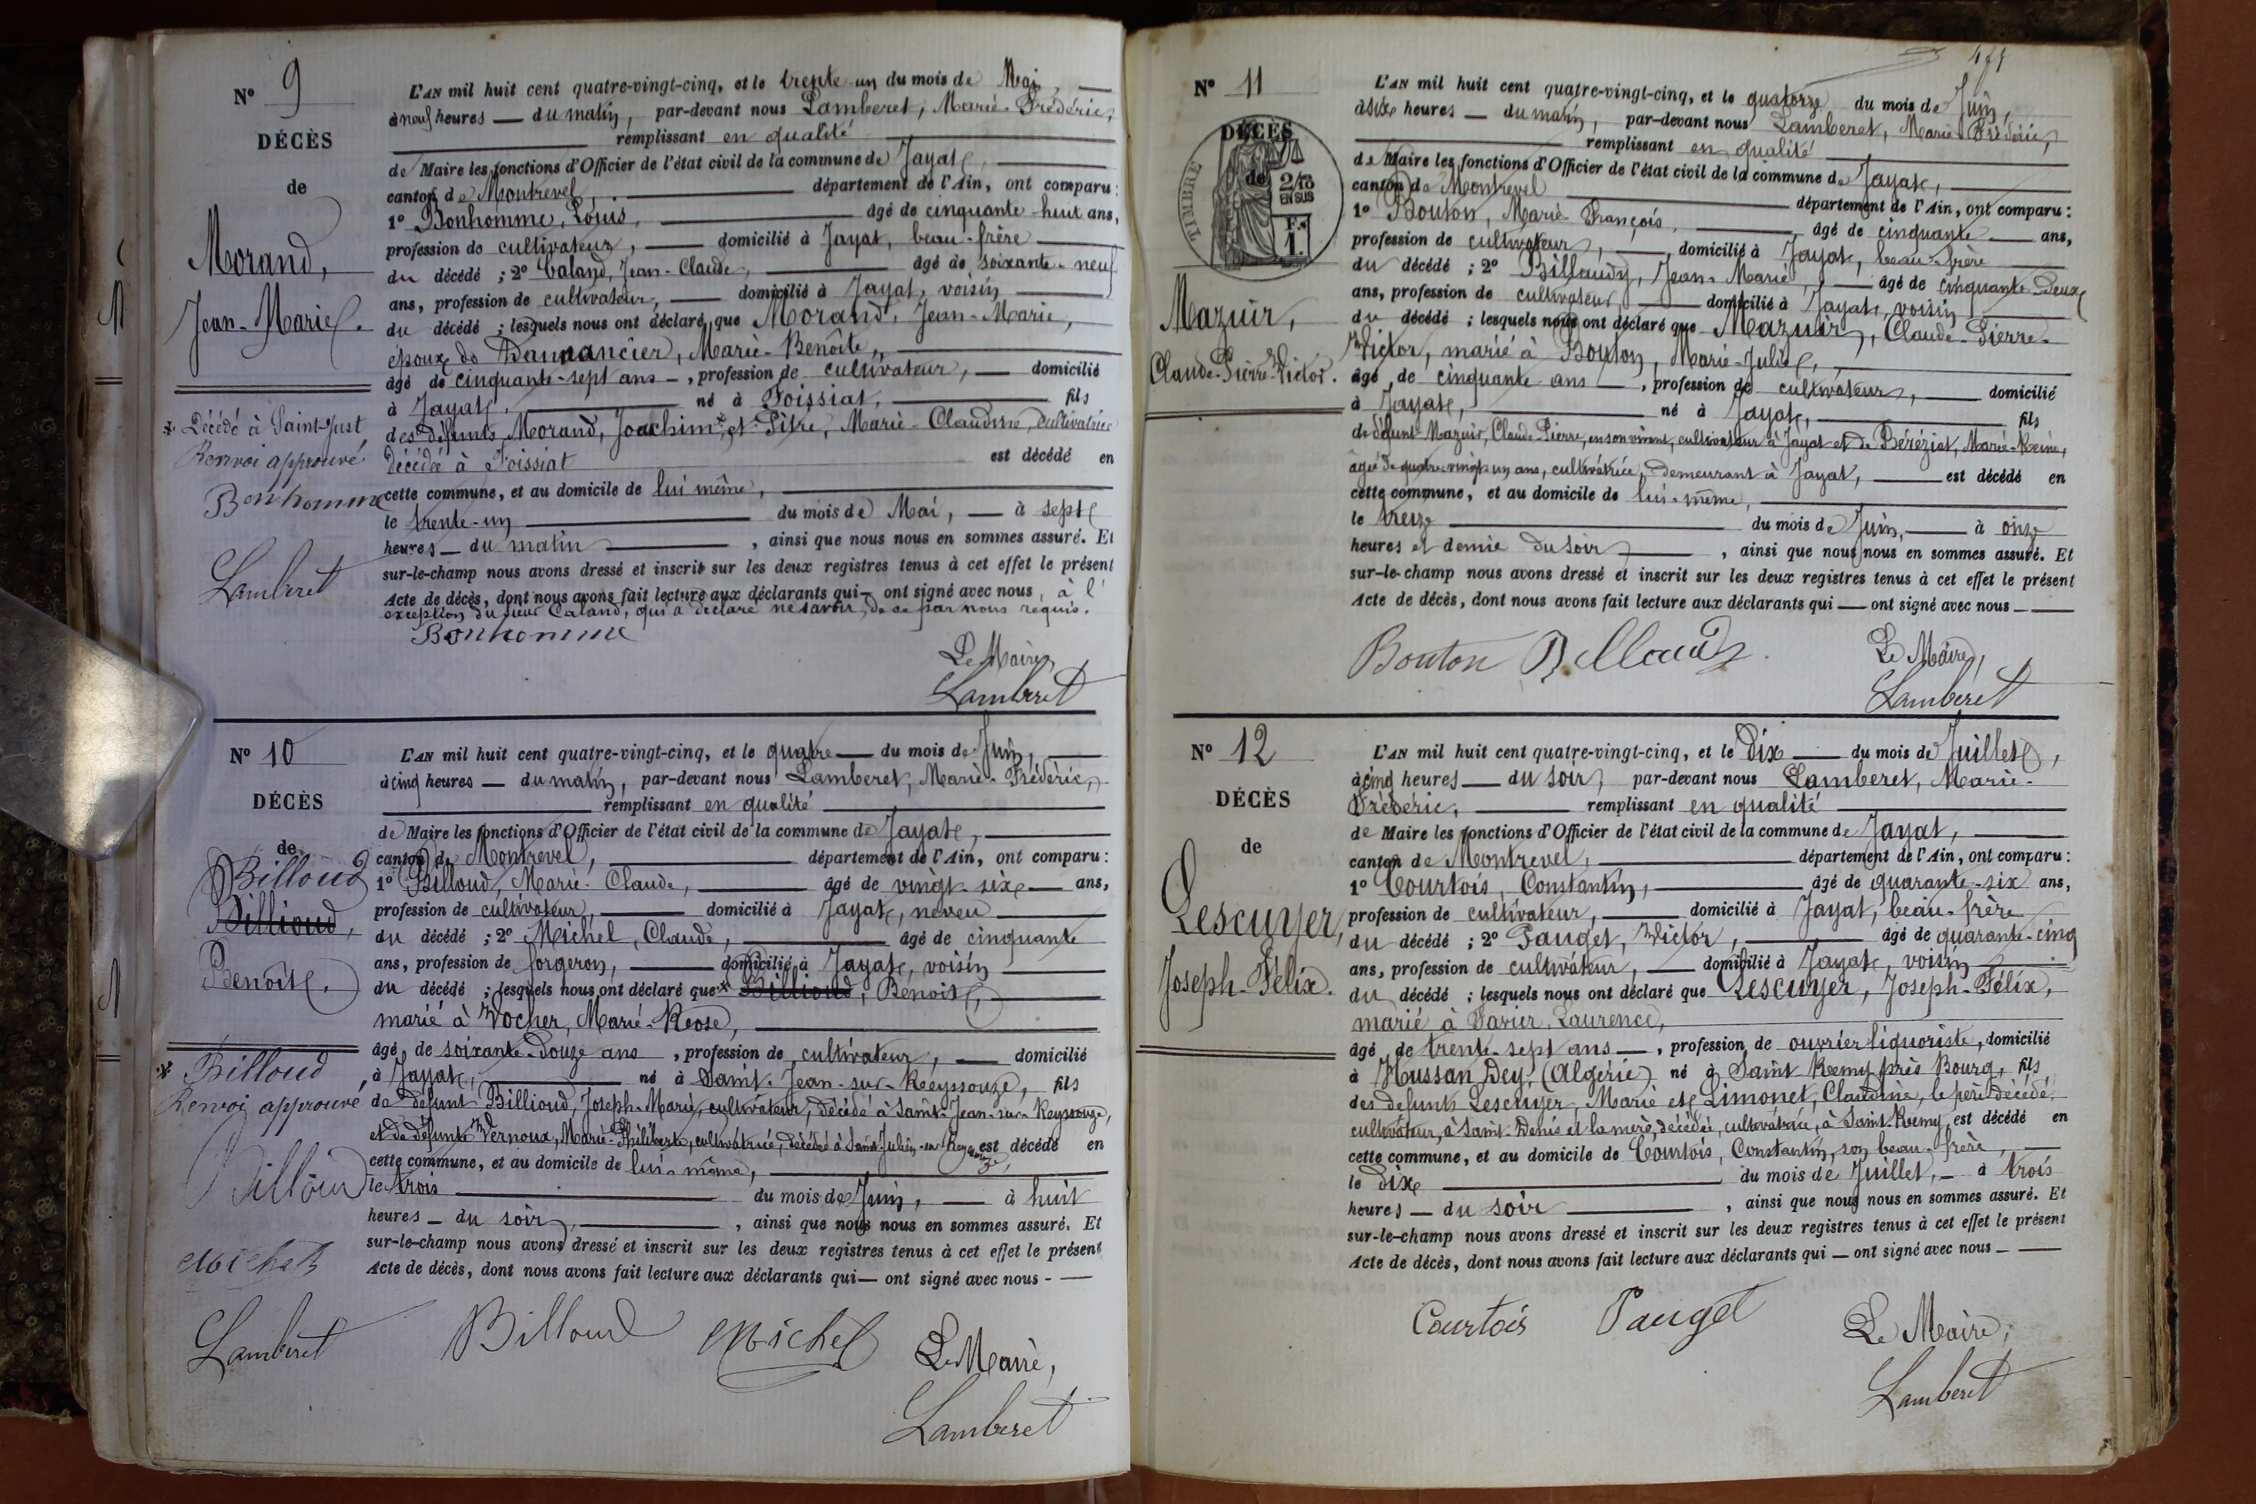 Nº 9
DÉCÈS
de
Morand,
Jean-Marie.
* Décédé à Saint-Just
Renvoi approuvé
Bonhomme
Lamberet
L'AN mil huit cent quatre-vingt-cinq, et le trente-un du mois de Mai,
à neuf heures — du matin, par-devant nous Lamberet, Marie-Frédéric,
remplissant en qualité
de Maire les fonctions d'Officier de l'état civil de la commune de Jayat,
canton de Montrevel, département de l'Ain, ont comparu :
1º Bonhomme, Louis, âgé de cinquante-huit ans,
profession de cultivateur, domicilié à Jayat, beau-frère
du décédé ; 2º Caland, Jean-Claude, âgé de soixante-neuf
ans, profession de cultivateur, domicilié à Jayat, voisin
du décédé ; lesquels nous ont déclaré que Morand, Jean-Marie,
époux de Dannancier, Marie-Benoîte,
âgé de cinquante-sept ans —, profession de cultivateur, — domicilié
à Jayat, né à Foissiat, fils
des défunts Morand, Joachim * et Pitre, Marie-Claudine, cultivatrice
décédée à Foissiat est décédé en
cette commune, et au domicile de lui même,
le trente-un du mois de Mai, — à sept
heures — du matin, ainsi que nous nous en sommes assuré. Et
sur-le-champ nous avons dressé et inscrit sur les deux registres tenus à cet effet le présent
Acte de décès, dont nous avons fait lecture aux déclarants qui — ont signé avec nous, à l'
exception du sieur Caland, qui a déclaré ne savoir, de ce par nous requis.
Bonhomme
Le Maire,
Lamberet
Nº 10
DÉCÈS
de
Billoud
Billioud,
Benoît.
* Billoud
Renvoi approuvé
Billoud
Michel
Lamberet
L'AN mil huit cent quatre-vingt-cinq, et le quatre — du mois de Juin,
à cinq heures — du matin, par-devant nous Lamberet, Marie-Frédéric,
remplissant en qualité
de Maire les fonctions d'Officier de l'état civil de la commune de Jayat,
canton de Montrevel, département de l'Ain, ont comparu :
1º Billoud, Marie-Claude, âgé de vingt-six — ans,
profession de cultivateur, domicilié à Jayat, neveu
du décédé ; 2º Michel, Claude, âgé de cinquante
ans, profession de forgeron, domicilié à Jayat, voisin
du décédé ; lesquels nous ont déclaré que * Billioud, Benoit,
marié à Vocher, Marie-Rose,
âgé de soixante-douze ans, profession de cultivateur, — domicilié
à Jayat, né à Saint-Jean-sur-Reyssouze, fils
de défunt Billioud, Joseph-Marie, cultivateur, décédé à Saint-Jean-sur-Reyssouze,
et de défunte Vernoux, Marie-Philiberte, cultivatrice, décédée à Saint-Julien-sur-Reyssouze, est décédé en
cette commune, et au domicile de lui-même,
le trois du mois de Juin, — à huit
heures — du soir, ainsi que nous nous en sommes assuré. Et
sur-le-champ nous avons dressé et inscrit sur les deux registres tenus à cet effet le présent
Acte de décès, dont nous avons fait lecture aux déclarants qui — ont signé avec nous -
Billoud Michel Le Maire,
Lamberet
Nº 11
DÉCÈS
de
TIMBRE
2/10
EN SUS
F.
1.
Mazuir,
Claude-Pierre-Victor.
L'AN mil huit cent quatre-vingt-cinq, et le quatorze du mois de Juin,
à six heures — du matin, par-devant nous Lamberet, Marie-Frédéric,
remplissant en qualité
de Maire les fonctions d'Officier de l'état civil de la commune de Jayat,
canton de Montrevel département de l'Ain, ont comparu :
1º Bouton, Marie-François, âgé de cinquante — ans,
profession de cultivateur, domicilié à Jayat, beau-frère
du décédé ; 2º Billaudy, Jean-Marie, âgé de cinquante-deux
ans, profession de cultivateur, domicilié à Jayat, voisin
du décédé ; lesquels nous ont déclaré que Mazuir, Claude-Pierre-
Victor, marié à Bouton, Marie-Julie,
âgé de cinquante ans —, profession de cultivateur, — domicilié
à Jayat, né à Jayat, fils
de défunt Mazuir, Claude-Pierre, en son vivant, cultivateur à Jayat et de Béréziat, Marie-Reine,
âgée de quatre-vingt-un ans, cultivatrice, demeurant à Jayat, est décédé en
cette commune, et au domicile de lui-même,
le treize du mois de Juin, — à onze
heures et demie du soir, ainsi que nous nous en sommes assuré. Et
sur-le-champ nous avons dressé et inscrit sur les deux registres tenus à cet effet le présent
Acte de décès, dont nous avons fait lecture aux déclarants qui — ont signé avec nous —
Bouton Billaudy Le Maire,
Lamberet
Nº 12
DÉCÈS
de
Lescuyer,
Joseph-Félix.
L'AN mil huit cent quatre-vingt-cinq, et le dix — du mois de Juillet,
à cinq heures — du soir, par-devant nous Lamberet, Marie-
Frédéric, remplissant en qualité
de Maire les fonctions d'Officier de l'état civil de la commune de Jayat,
canton de Montrevel, département de l'Ain, ont comparu :
1º Courtois, Constantin, âgé de quarante-six ans,
profession de cultivateur, domicilié à Jayat, beau-frère
du décédé ; 2º Pauget, Victor, âgé de quarante-cinq
ans, profession de cultivateur, domicilié à Jayat, voisin
du décédé ; lesquels nous ont déclaré que Lescuyer, Joseph-Félix,
marié à Savier, Laurence,
âgé de trente-sept ans —, profession de ouvrier liquoriste, domicilié
à Hussan Dey, (Algérie) né à Saint Remy près Bourg, fils
des defunts Lescuyer, Marie et Limonet, Claudine, le père décédé,
cultivateur, à Saint-Denis et la mère, décédée, cultivatrice, à Saint-Remy, est décédé en
cette commune, et au domicile de Courtois, Constantin, son beau-frère,
le dix du mois de Juillet, — à trois
heures — du soir, ainsi que nous nous en sommes assuré. Et
sur-le-champ nous avons dressé et inscrit sur les deux registres tenus à cet effet le présent
Acte de décès, dont nous avons fait lecture aux déclarants qui — ont signé avec nous —
Courtois Pauget Le Maire,
Lamberet